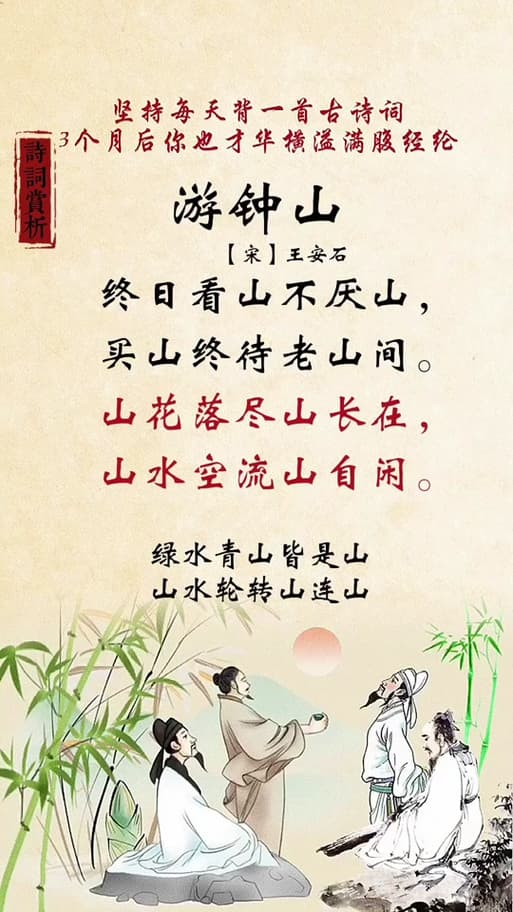 坚持每天背一首古诗词
3个月后你也才华横溢满腹经纶
詩詞賞析
游钟山
【宋】王安石
终日看山不厌山，
买山终待老山间。
山花落尽山长在，
山水空流山自闲。
绿水青山皆是山
山水轮转山连山